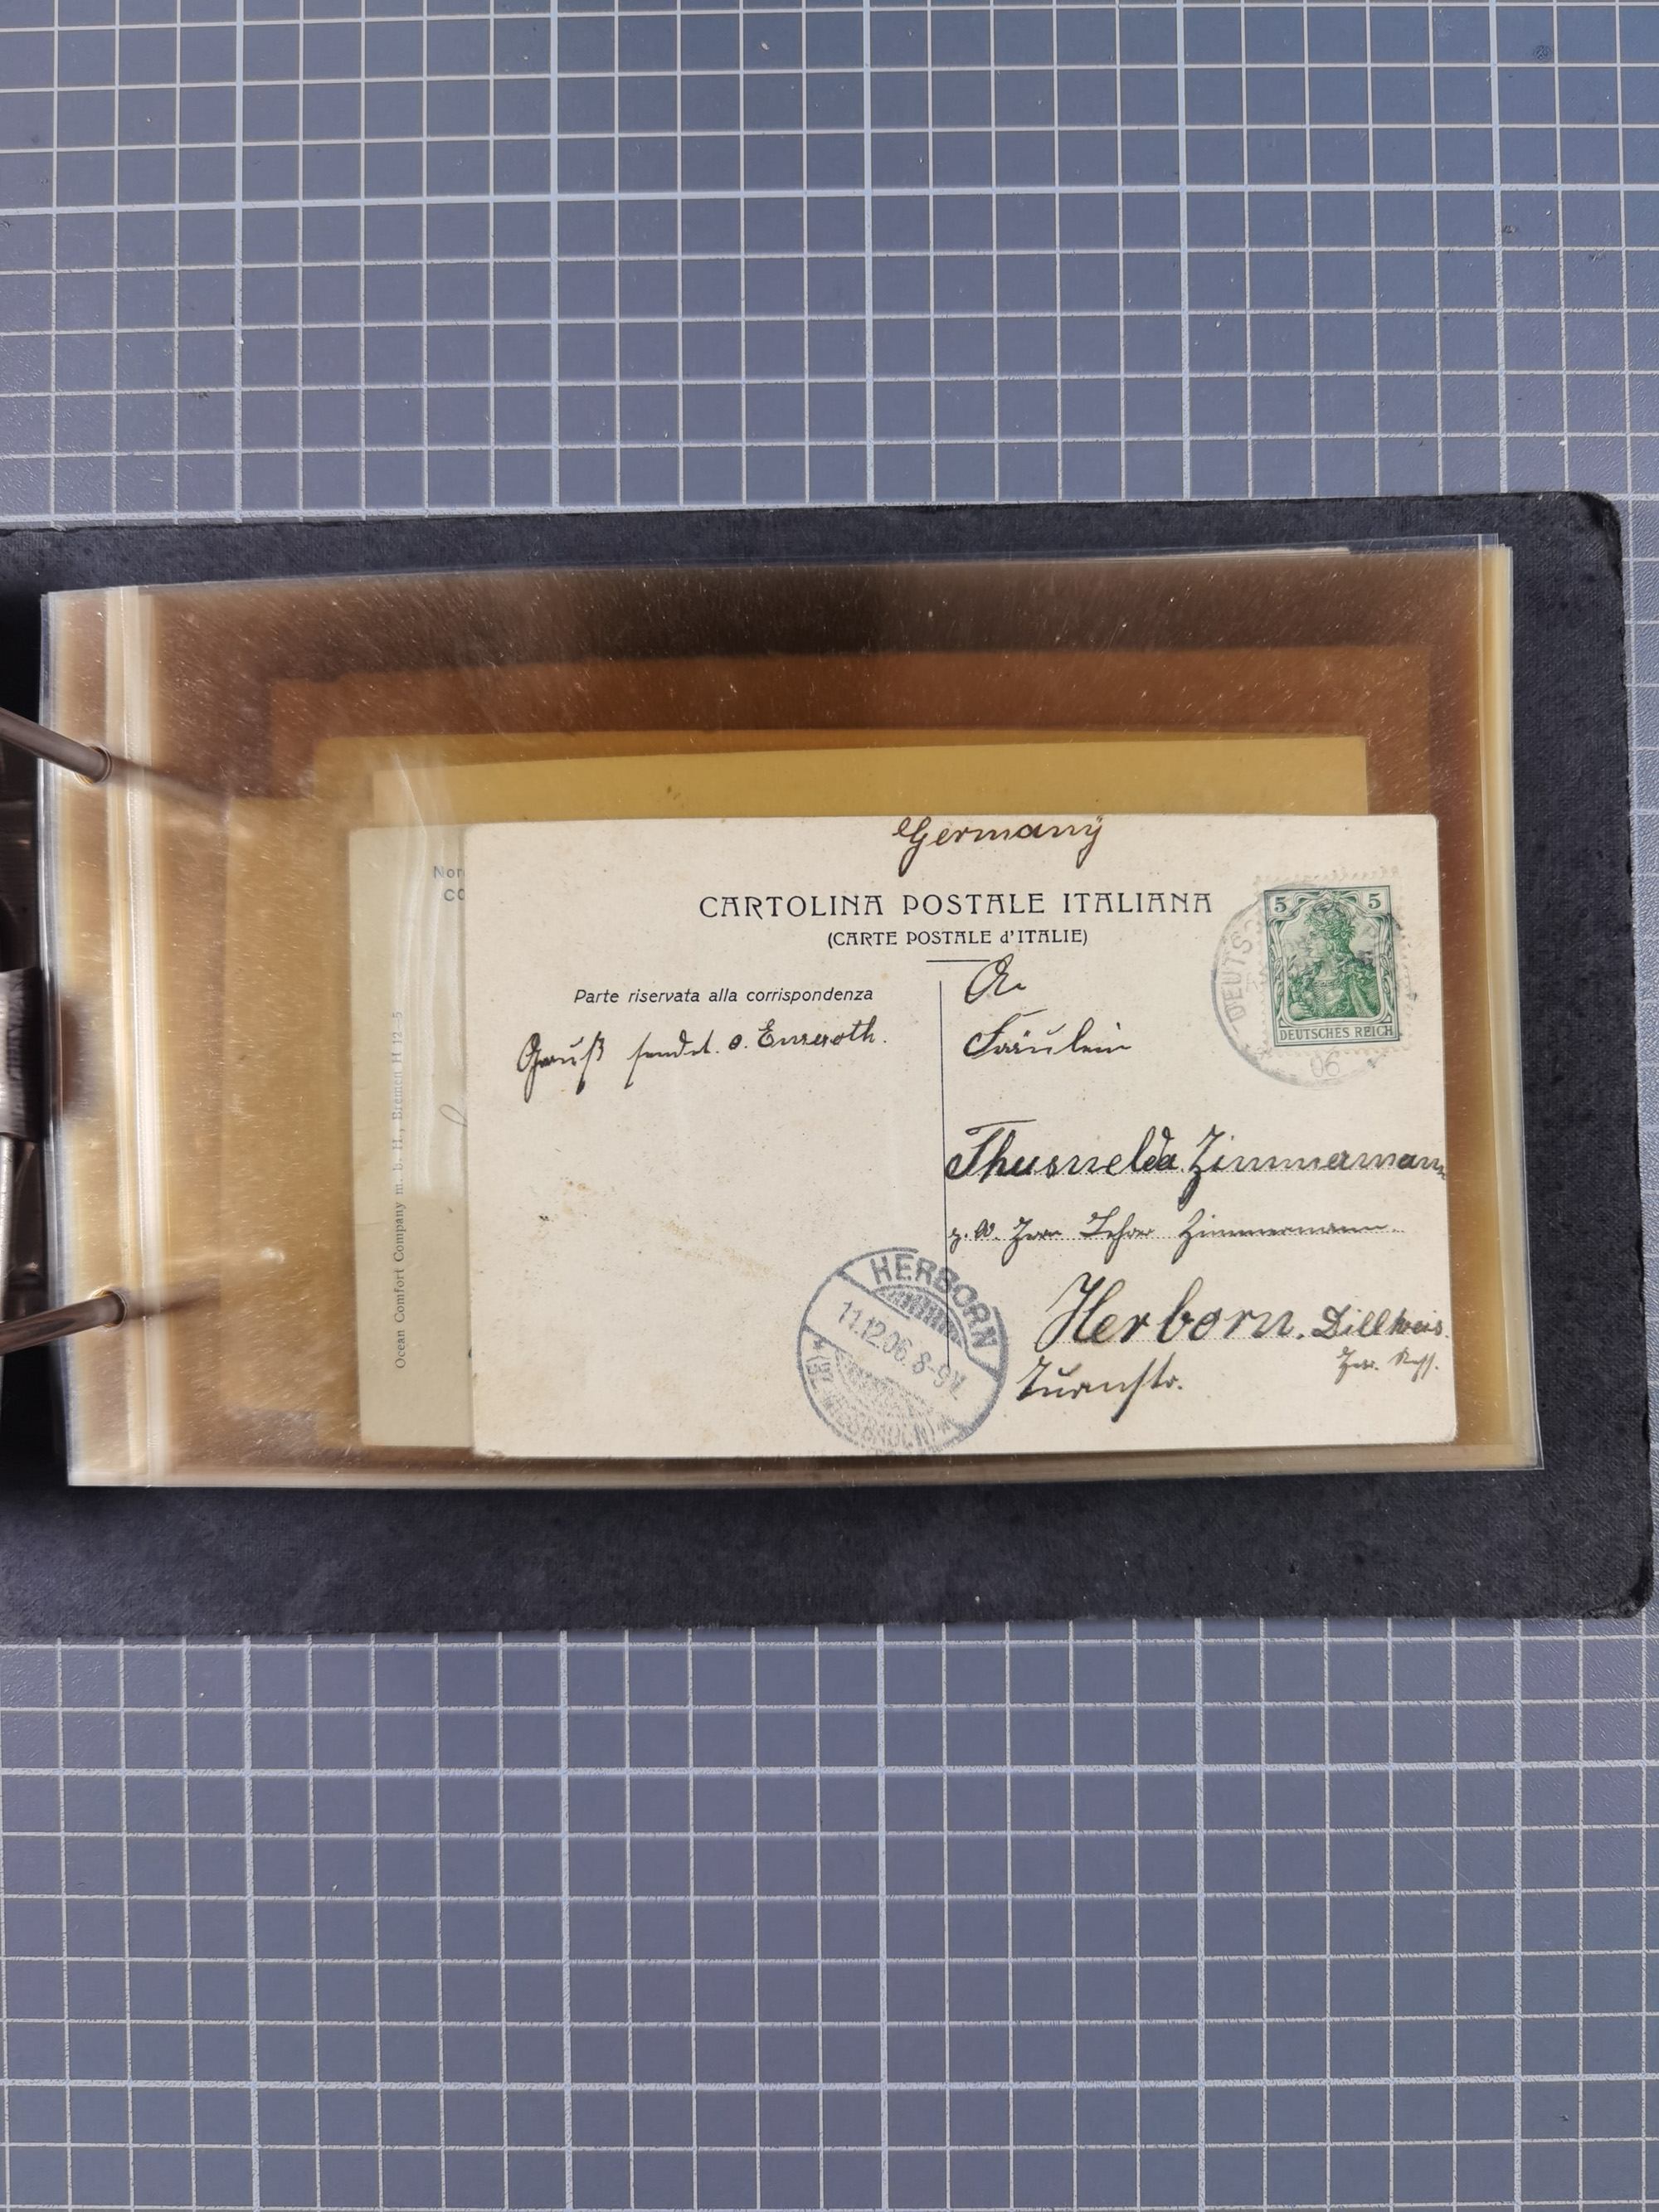 Germany
CARTOLINA POSTALE ITALIANA
(CARTE POSTALE d'ITALIE)
Parte riservata alla corrispondenza
Gruß sendet
An
Fräulein
Thusnelda Zimmermann
Lehrer Zimmermann.
Herborn. Dillkreis.
Turnstr.
5 5
DEUTSCHES REICH
DEUTS
06
HERBORN
11.12.06. 8-9V.
Nor
CO
Ocean Comfort Company m. b. H., Bremen H 12 5